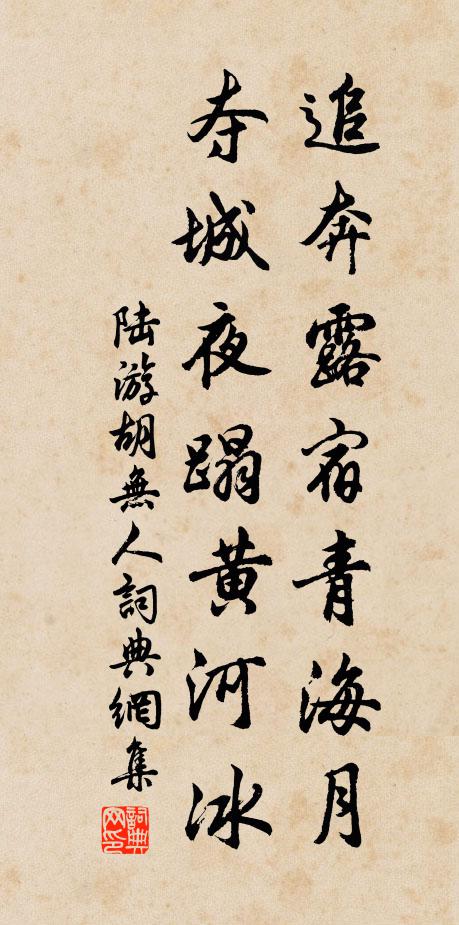 追奔露宿青海月
夺城夜蹋黄河冰
陆游胡無人詞典網集
詞典
网印